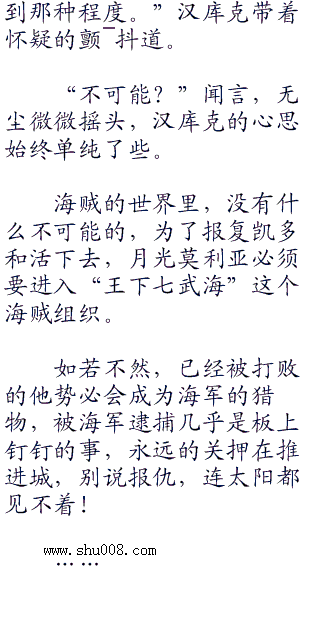 到那种程度。”汉库克带着
怀疑的颤¯抖道。
“不可能？”闻言，无
尘微微摇头，汉库克的心思
始终单纯了些。
海贼的世界里，没有什
么不可能的，为了报复凯多
和活下去，月光莫利亚必须
要进入“王下七武海”这个
海贼组织。
如若不然，已经被打败
的他势必会成为海军的猎
物，被海军逮捕几乎是板上
钉钉的事，永远的关押在推
进城，别说报仇，连太阳都
见不着！
www.shu008.com
……